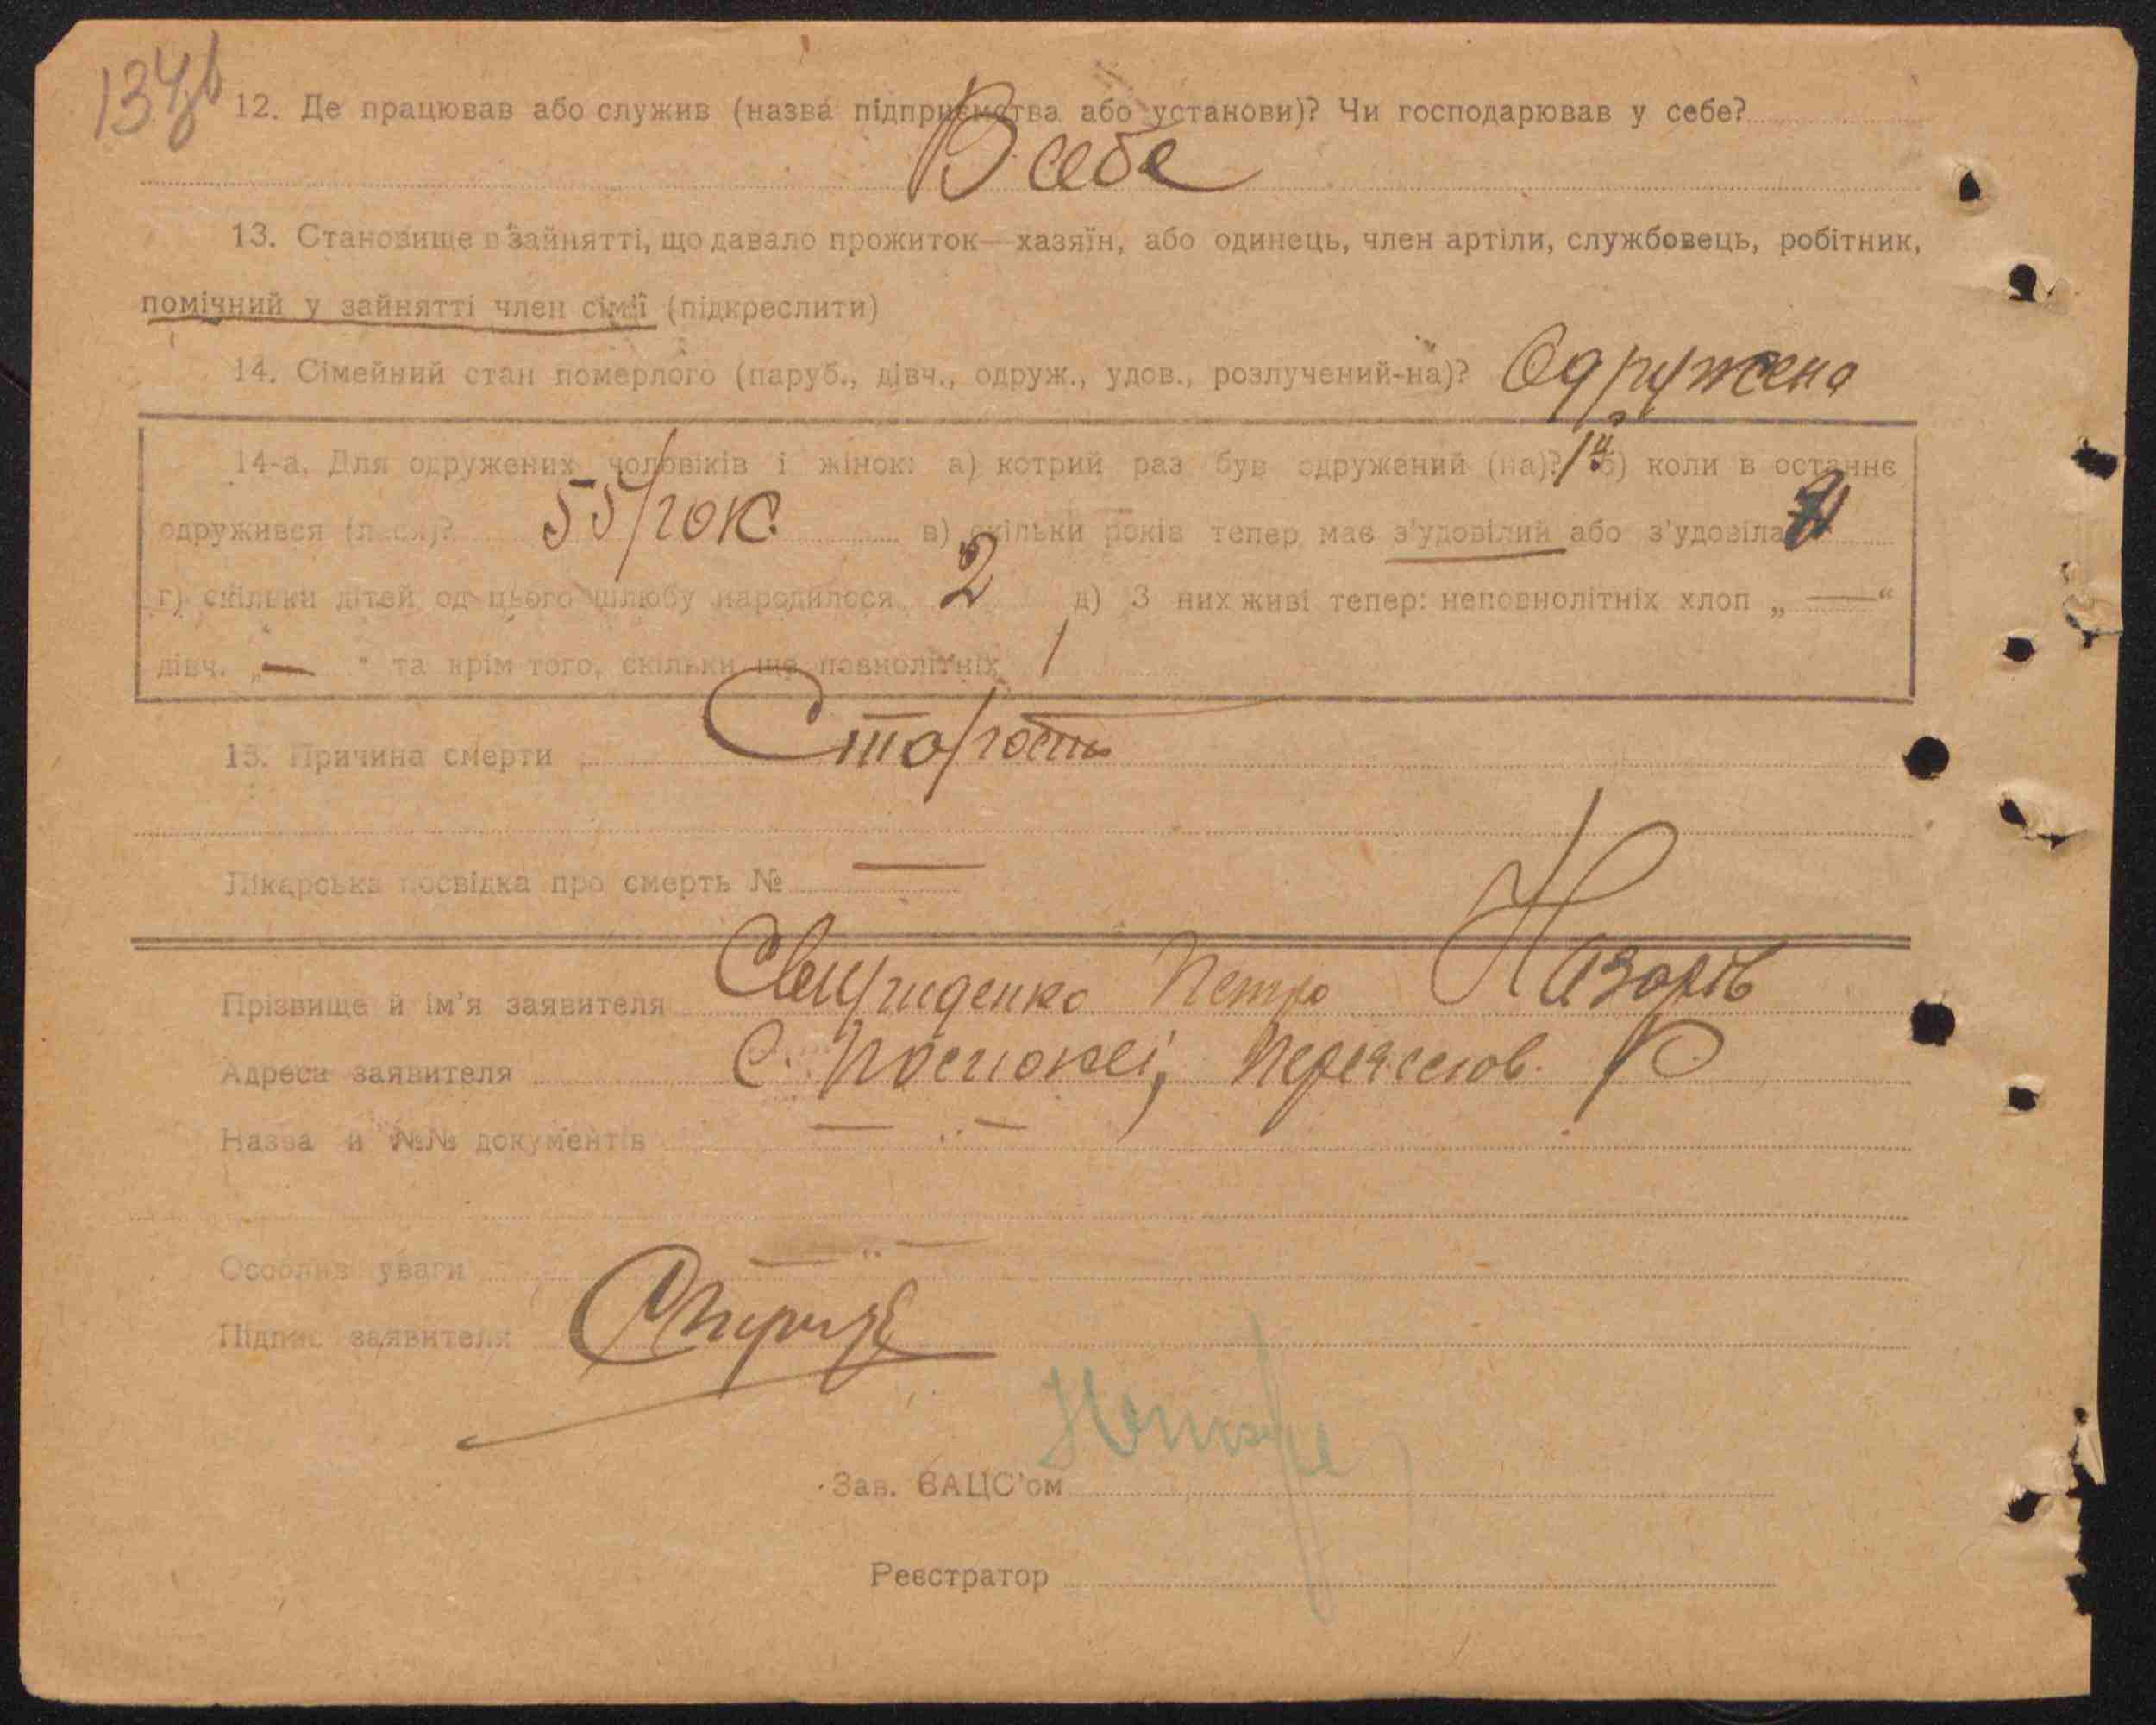 12. Де працював або служив (назва підприємства або установи)? Чи господарював у себе?
В себе
13. Становище в зайнятті, що давало прожиток—хазяїн, або одинець, член артіли, службовець, робітник,
помічний у зайнятті член сімї (підкреслити)
14. Сімейний стан померлого (паруб., дівч., одруж., удов., розлучений-на)? Одружена
14-а. Для одружених чоловіків і жінок: а) котрий раз був одружений (на)? 1й б) коли в останнє
одружився (лася)? 55 рок. в) скільки років тепер має з'удовілий або з'удовіла
г) скільки дітей од цього шлюбу народилося 2 д) З них живі тепер: неповнолітніх хлоп „ — “
дівч. „ — " та крім того, скільки ще повнолітніх 1
15. Причина смерти Старость
Лікарська посвідка про смерть № —
Прізвище й ім'я заявителя Свириденко Петро Назарів
Адреса заявителя С. Переяслов. Р.
Назва й №№ документів — „ —
Особливі уваги — „ —
Підпис заявителя
Зав. ВАЦС'ом
Реєстратор